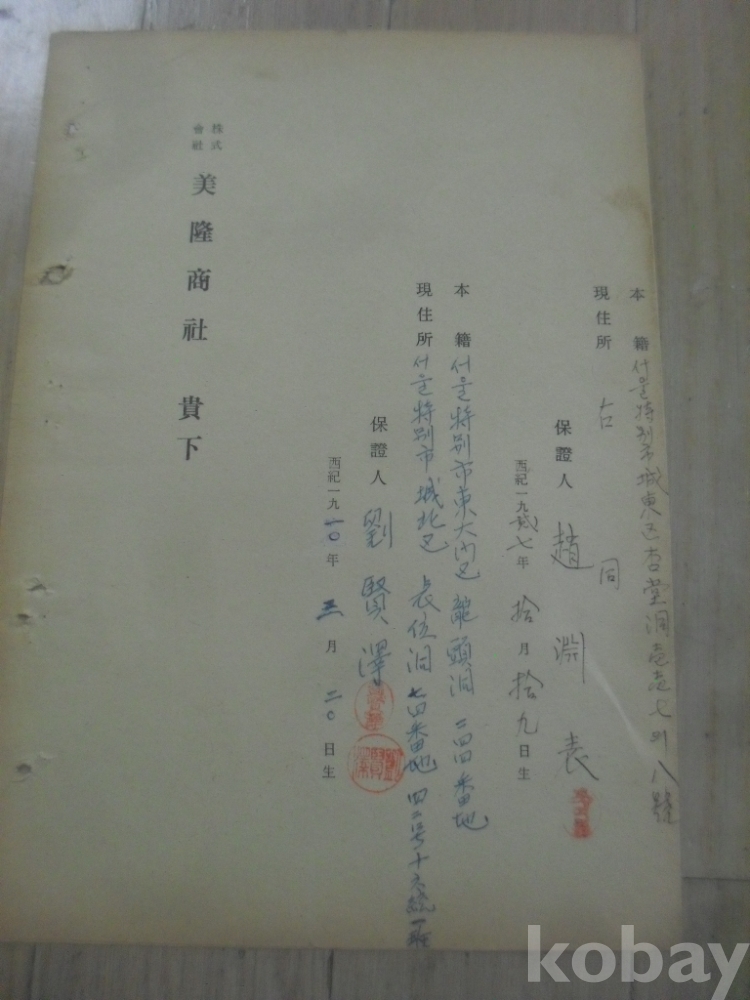 本籍 서울特別市城東区杏堂洞壱壱七의八號
現住所 右同
保證人 趙淵表
西紀一九貳七年拾月拾九日生
本籍 서울特別市東大門区龍頭洞二四四番地
現住所 서울特別市城北区長位洞七四番地四二号十六統一班
保證人 劉賢澤
西紀一九一〇年三月二〇日生
株式會社 美隆商社 貴下
kobay